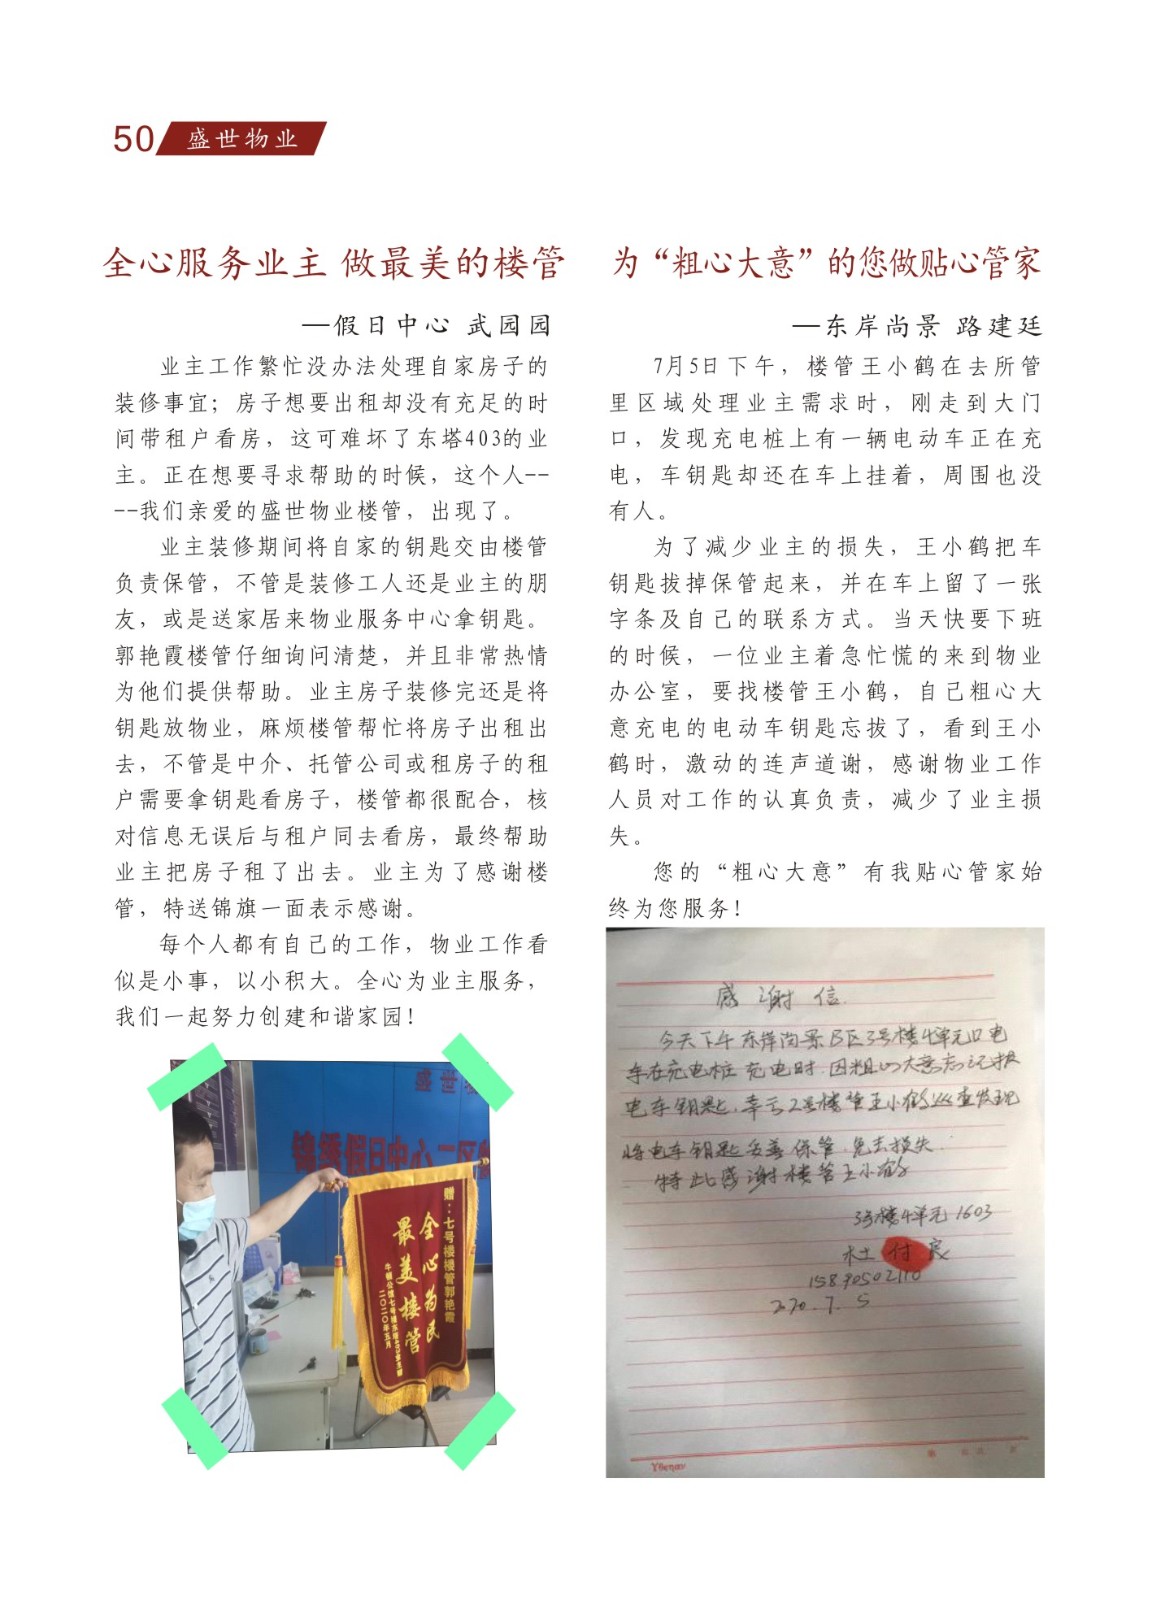 50 盛世物业
全心服务业主 做最美的楼管
—假日中心 武园园
业主工作繁忙没办法处理自家房子的
装修事宜；房子想要出租却没有充足的时
间带租户看房，这可难坏了东塔403的业
主。正在想要寻求帮助的时候，这个人--
--我们亲爱的盛世物业楼管，出现了。
业主装修期间将自家的钥匙交由楼管
负责保管，不管是装修工人还是业主的朋
友，或是送家居来物业服务中心拿钥匙。
郭艳霞楼管仔细询问清楚，并且非常热情
为他们提供帮助。业主房子装修完还是将
钥匙放物业，麻烦楼管帮忙将房子出租出
去，不管是中介、托管公司或租房子的租
户需要拿钥匙看房子，楼管都很配合，核
对信息无误后与租户同去看房，最终帮助
业主把房子租了出去。业主为了感谢楼
管，特送锦旗一面表示感谢。
每个人都有自己的工作，物业工作看
似是小事，以小积大。全心为业主服务，
我们一起努力创建和谐家园！
盛世
锦绣假日中心二区
赠：七号楼楼管郭艳霞
全心为民
最美楼管
二〇二〇年五月
为“粗心大意”的您做贴心管家
—东岸尚景 路建廷
7月5日下午，楼管王小鹤在去所管
里区域处理业主需求时，刚走到大门
口，发现充电桩上有一辆电动车正在充
电，车钥匙却还在车上挂着，周围也没
有人。
为了减少业主的损失，王小鹤把车
钥匙拔掉保管起来，并在车上留了一张
字条及自己的联系方式。当天快要下班
的时候，一位业主着急忙慌的来到物业
办公室，要找楼管王小鹤，自己粗心大
意充电的电动车钥匙忘拔了，看到王小
鹤时，激动的连声道谢，感谢物业工作
人员对工作的认真负责，减少了业主损
失。
您的“粗心大意”有我贴心管家始
终为您服务！
感谢信
今天下午东岸尚景B区3号楼4单元口电
车在充电桩充电时.因粗心大意忘记拔
电车钥匙.幸亏2号楼管王小鹤巡查发现
将电车钥匙妥善保管.免去损失.
特此感谢楼管王小鹤
3号楼4单元1603
15890502110
2020.7.5